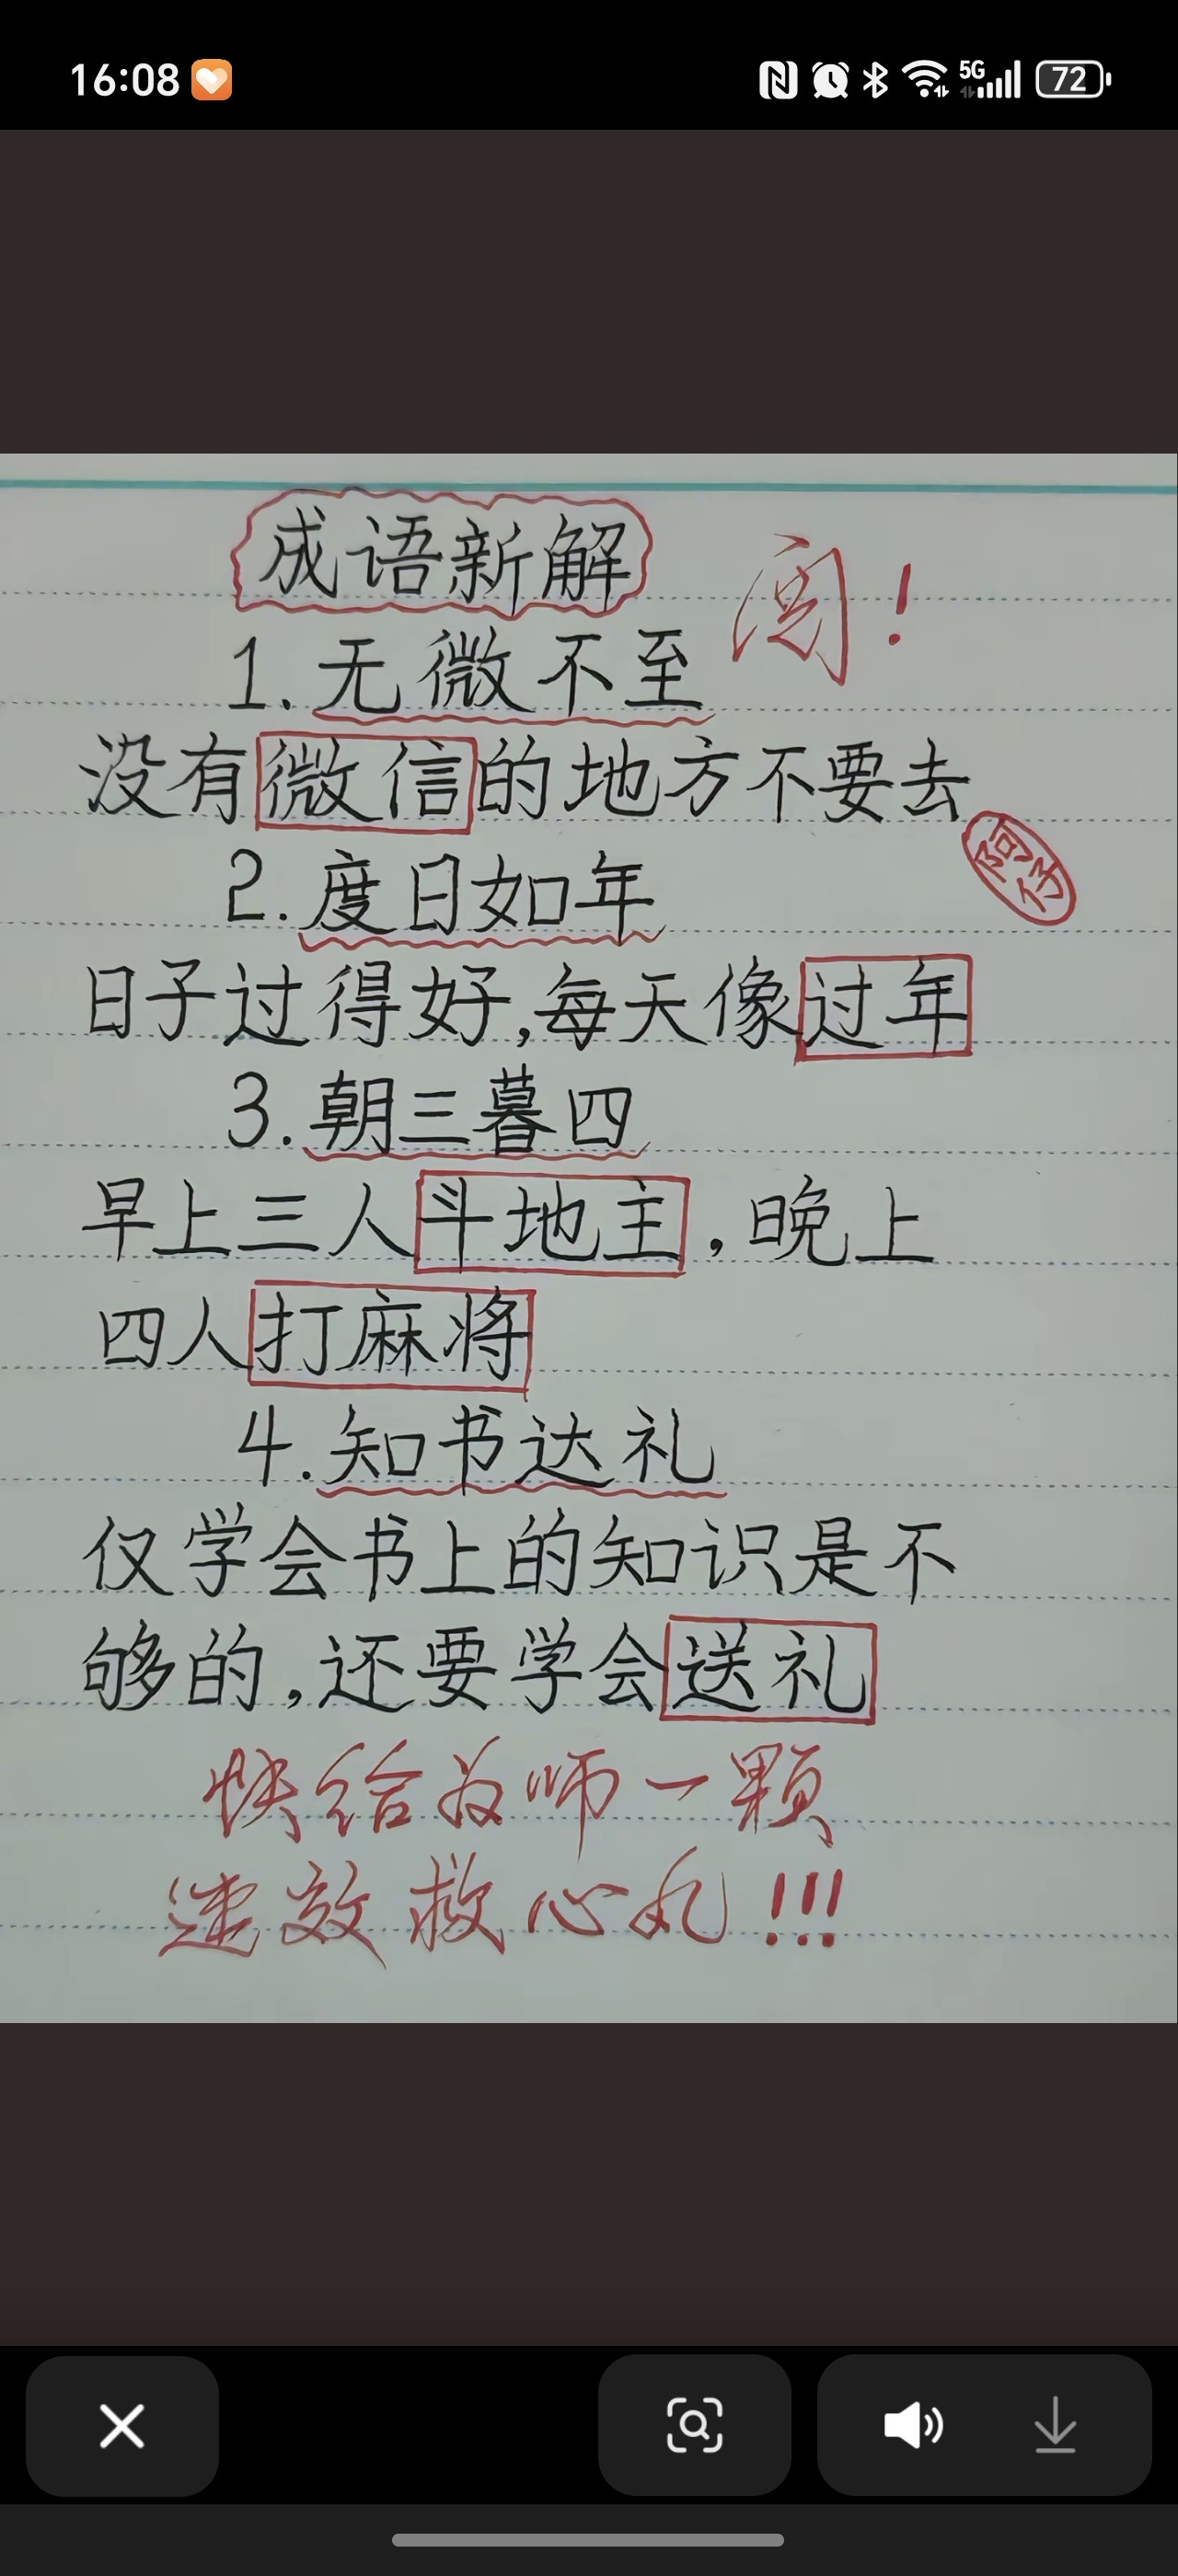 16:08
5G
72
成语新解
阅!
1.无微不至
没有微信的地方不要去
2.度日如年
日子过得好,每天像过年
3.朝三暮四
早上三人斗地主,晚上
四人打麻将
4.知书达礼
仅学会书上的知识是不
够的,还要学会送礼
快给为师一颗
速效救心丸!!!